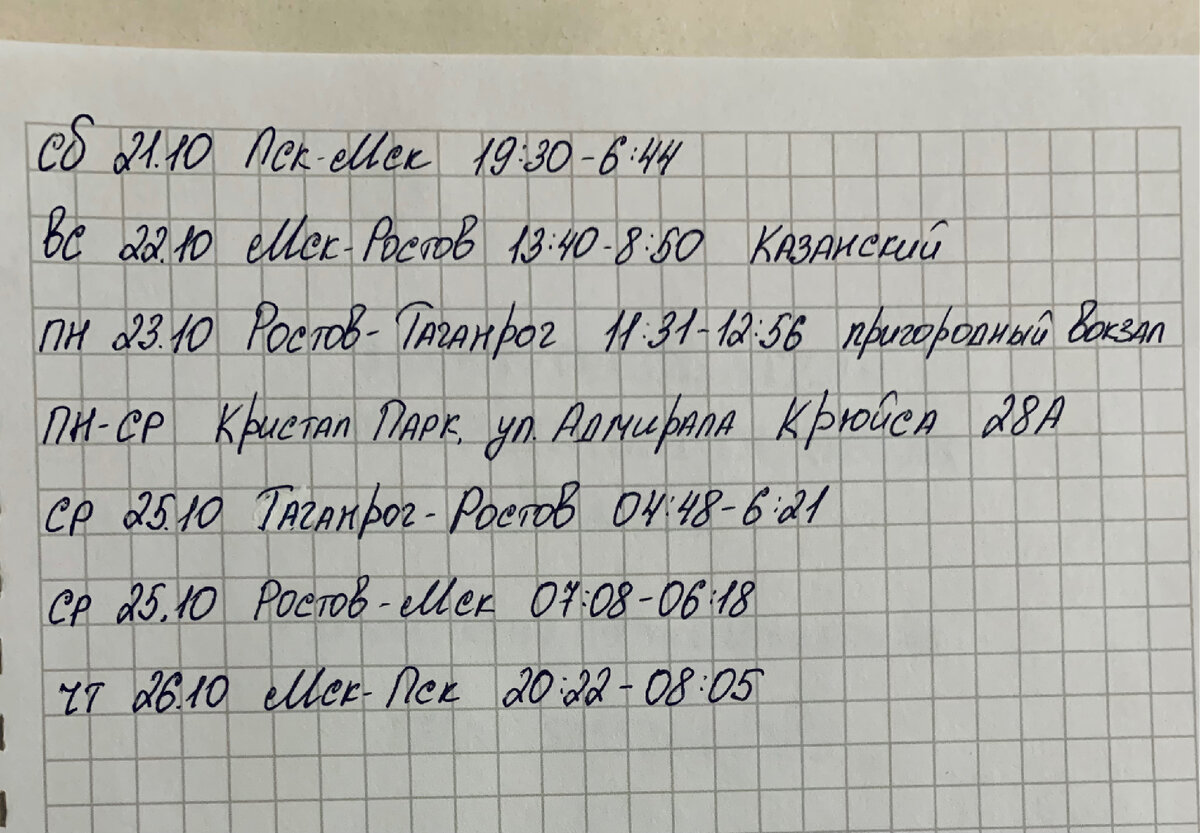 Сб 21.10 Пск-Мск 19:30-6:44
Вс 22.10 Мск-Ростов 13:40-8:50 Казанский
ПН 23.10 Ростов-Таганрог 11:31-12:56 пригородный вокзал
ПН-СР Кристал Парк, ул. Адмирала Крюйса 28А
СР 25.10 Таганрог-Ростов 04:48-6:21
СР 25.10 Ростов-Мск 07:08-06:18
ЧТ 26.10 Мск-Пск 20:22-08:05